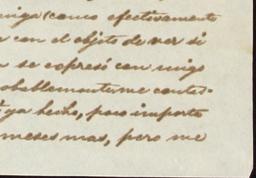 migo (como efectivamente
r con el objeto de ver si
n se expresó con migo
obablemente me contes-
ya hecho, poco importa
meses mas, pero me